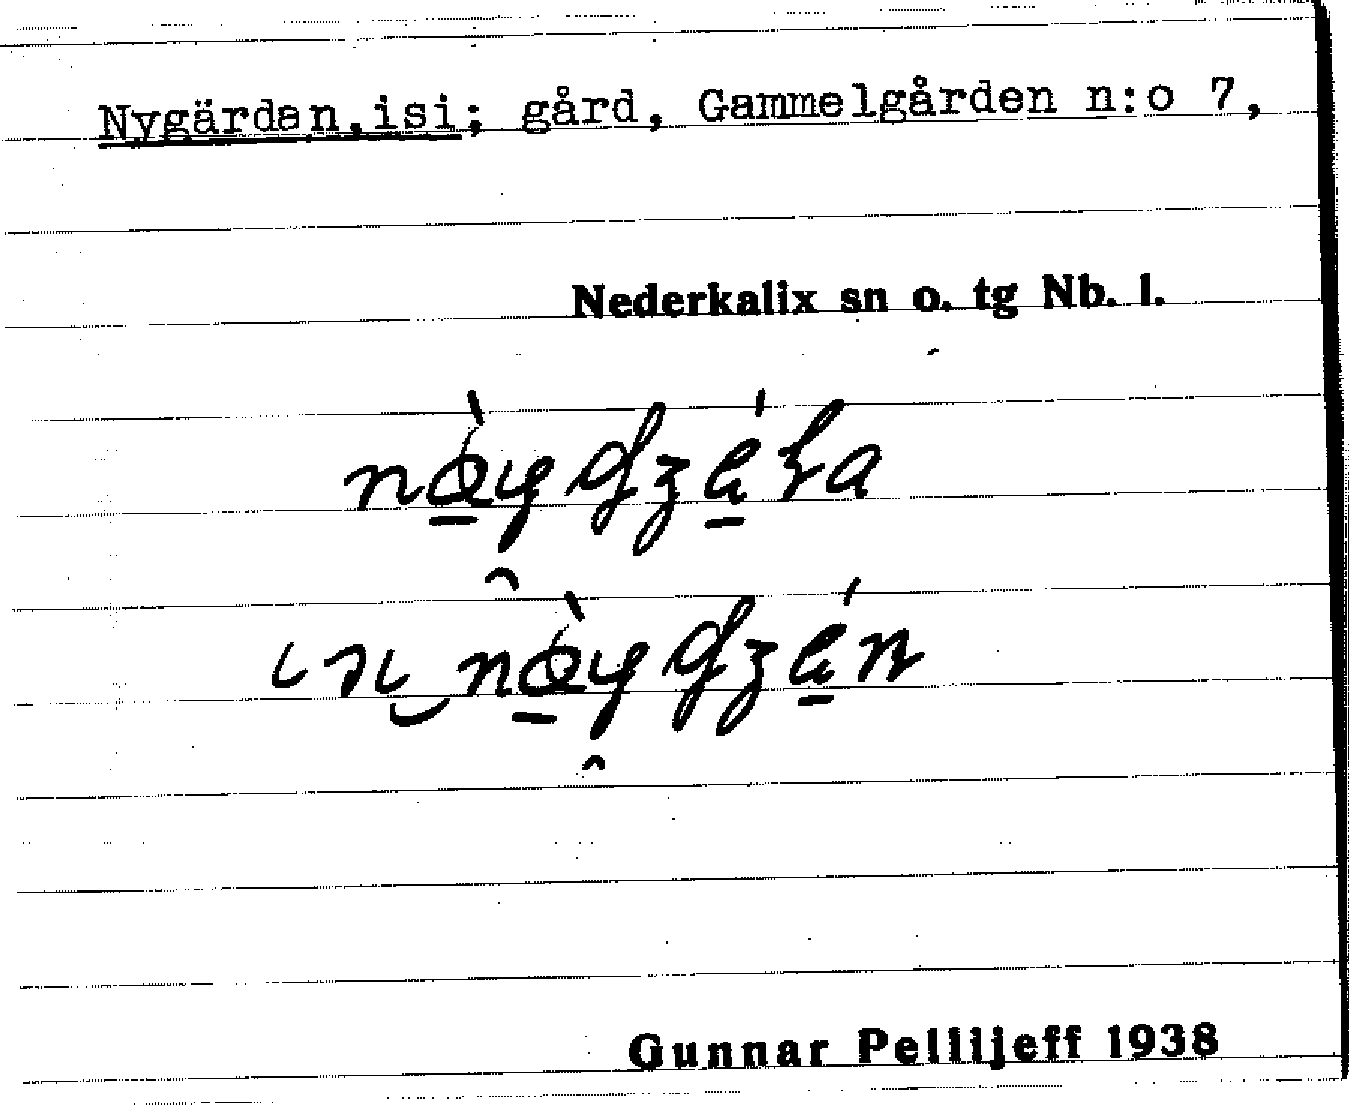 Nygärdan,isi; gård, Gammelgården n:o 7,
Nederkalix sn o. tg Nb. l.
Gunnar Pellijeff 1938